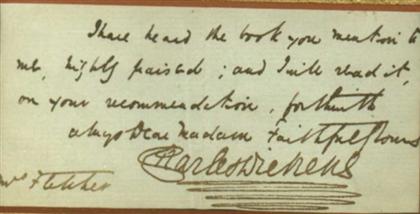 I have heard the book you mention to
me, highly praised; and I will read it,
on your recommendation, forthwith
always Dear Madam Faithfully Yours
Charles Dickens
Mrs Fletcher